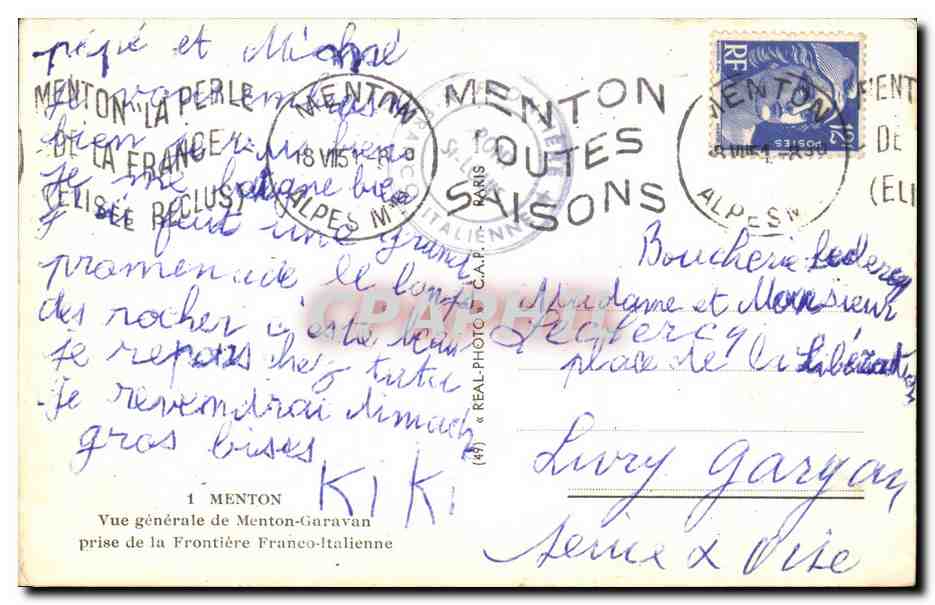 pépé et Michié
je vous embrasse
bien
je me baigne bien
j'ai fait une grand
promenade le long
des rocher c'este beau
je repars chez tata
je revendrai dimach
gros bises
KiKi
1 MENTON
Vue générale de Menton-Garavan
prise de la Frontière Franco-Italienne
MENTON "LA PERLE
DE LA FRANCE"
(ELISÉE RECLUS)
MENTON
18 VII 51
ALPES Mmes
MENTON
TOUTES
SAISONS
FRANCO ITALIENNE
RF
POSTES
MENTON
ALPES M
MENT
DE
(ELI
(49) « REAL-PHOTO » C.A.P. PARIS
CPARAMA
Boucherie Leclercq
Madame et Monsieur
Leclercq
place de la Libération
Livry Gargan
Seine & Oise